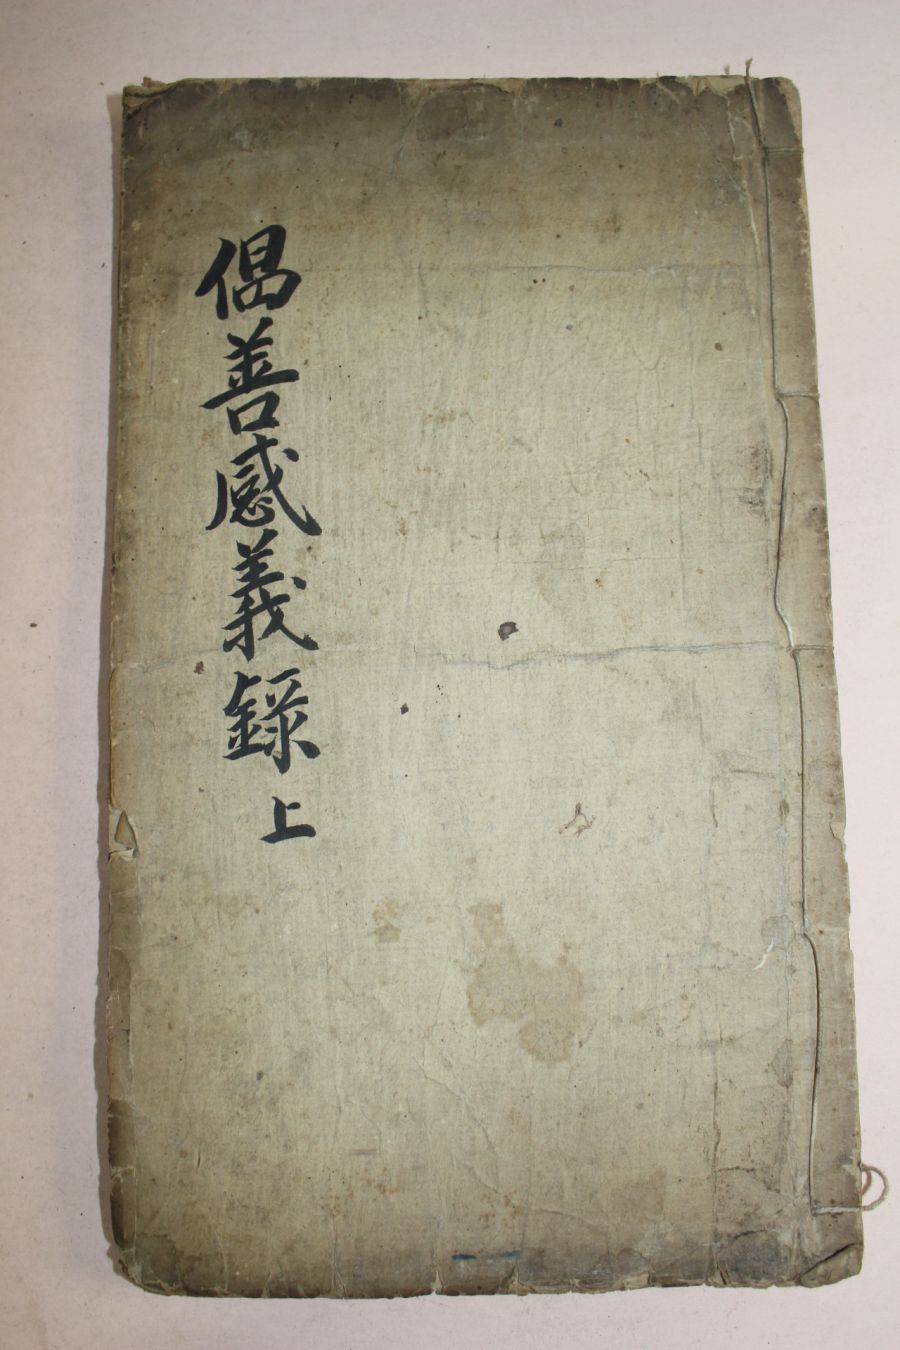 偈善感義錄上